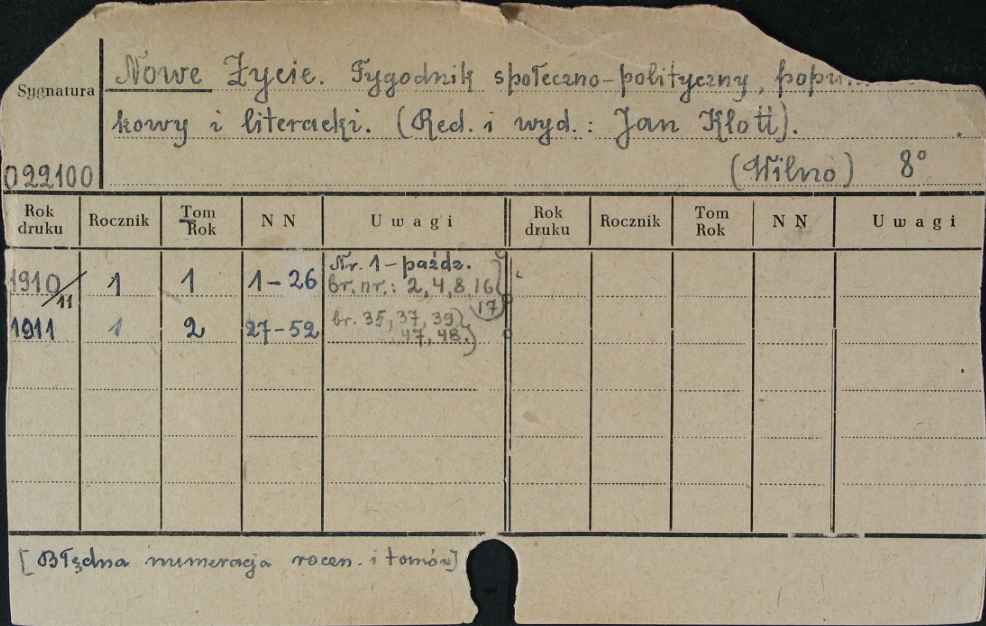 Nowe Życie. Tygodnik społeczno-polityczny, popu...
Sygnatura
kowy i literacki. (Red. i wyd.: Jan Kłott).
022100 (Wilno) 8°
Rok druku Rocznik Tom Rok NN Uwagi Rok druku Rocznik Tom Rok NN Uwagi
1910/11 1 1 1-26 Nr. 1-paźdz.
br. nr.: 2, 4, 8, 16
17
1911 1 2 27-52 br. 35, 37, 39
47, 48.
[Błędna numeracja roczn. i tomów]